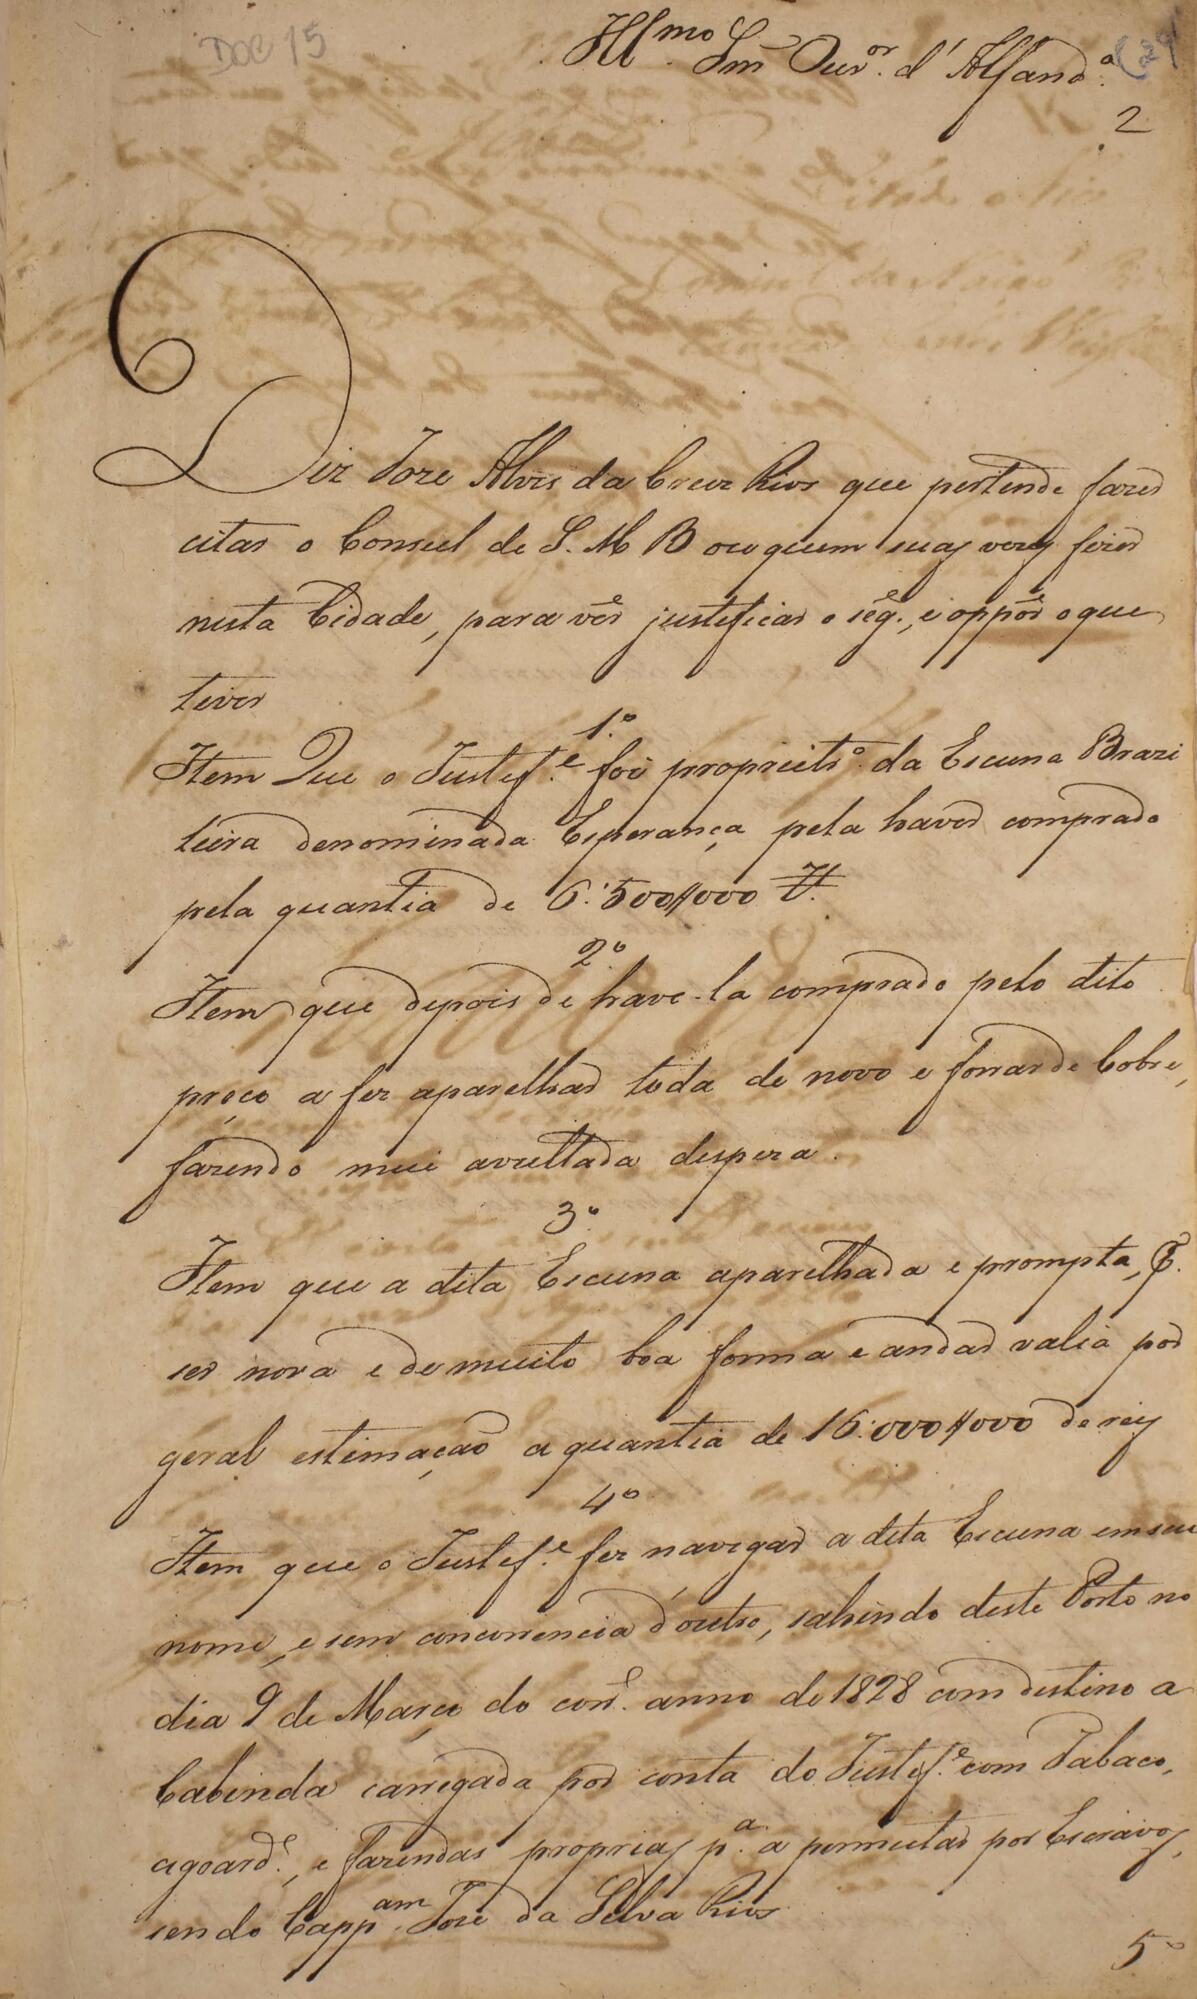 DOC 15
Illmo Snr Ouvor. d' Alfanda.
29
2
Diz Joze Alvis da Cruz Rios que pertende fazer
citar o Consul de S. M B ou quem suas vezes fizer
nesta Cidade, para vêr justeficar o seg.e, e oppôr o que
tiver
1.º
Item Que o Justef.e foi proprieto. da Escuna Brazi
leira denominada Esperança pela haver comprado
pela quantia de 6:500$000 r.
2º
Item que depois de have-la comprado pelo dito
preço a fez aparelhar toda de novo e forrar de Cobre,
fazendo mui avultada despeza.
3º
Item que a dita Escuna aparelhada e prompta, P.
ser nova e de muito boa forma e andar valia por
geral estimação a quantia de 16:000$000 de reis
4º
Item que o Justef.e fez navegar a dita Escuna em seu
nome, e sem concorrencia d'outro, sahindo deste Porto no
dia 9 de Março do corre. anno de 1828 com destino a
Cabinda carregada por conta do Justef.e com Tabaco,
agoarde., e fazendas proprias pa. a permutar por Escravos,
sendo Cappam Joze da Silva Rios
5º